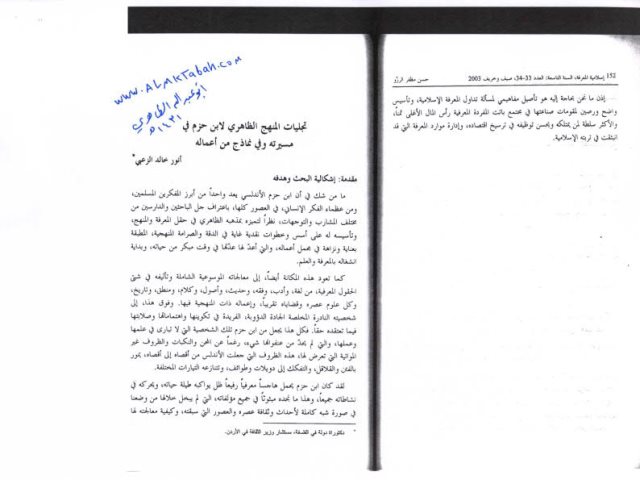 152 إسلامية المعرفة، السنة التاسعة، العدد 33-34، صيف وخريف 2003 حسن مظفر الرزّو
إذن ما نحن بحاجة إليه هو تأصيل مفاهيمي لمسألة تداول المعرفة الإسلامية، وتأسيس
واضح ورصين لمقومات صناعتها في مجتمع باتت المفردة المعرفية رأس المال الأغلى ثمناً،
والأكثر سلطة لمن يمتلكه ويحسن توظيفه في ترسيخ اقتصاده، وإدارة موارد المعرفة التي قد
انبثقت في تربته الإسلامية.
www.ALMKTabah.com
١٤٣١هـ
تجليات المنهج الظاهري لابن حزم في
مسيرته وفي نماذج من أعماله
أنور خالد الزعبي*
مقدمة: إشكالية البحث وهدفه
ما من شك في أن ابن حزم الأندلسي يعد واحداً من أبرز المفكرين المسلمين،
ومن عظماء الفكر الإنساني، في العصور كلها، باعتراف جل الباحثين والدارسين من
مختلف المشارب والتوجهات، نظراً لتميزه بمذهبه الظاهري في حقل المعرفة والمنهج،
وتأسيسه له على أسس وخطوات نقدية غاية في الدقة والصرامة المنهجية، المطبقة
بعناية ونزاهة في مجمل أعماله، والتي أعدّ لها عدّتها في وقت مبكر من حياته، وبداية
انشغاله بالمعرفة والعلم.
كما تعود هذه المكانة أيضاً، إلى معالجاته الموسوعية الشاملة وتأليفه في شتى
الحقول المعرفية، من لغة، وأدب، وفقه، وحديث، وأصول، وكلام، ومنطق، وتاريخ،
وكل علوم عصره وقضاياه تقريباً، وإعماله ذات المنهجية فيها. وفوق هذا، إلى
شخصيته النادرة المخلصة الجادة الدؤوبة، الفريدة في تكوينها واهتماماتها وصلابتها
فيما تعتقده حقاً. فكل هذا يجعل من ابن حزم تلك الشخصية التي لا تبارى في علمها
وعملها، والتي لم يحدّ من عنفوانها شيء، رغماً عن المحن والنكبات والظروف غير
المواتية التي تعرض لها، هذه الظروف التي جعلت الأندلس من أقصاه إلى أقصاه، يمور
بالفتن والقلاقل، والتفكك إلى دويلات وطوائف، وتتنازعه التيارات المختلفة.
لقد كان ابن حزم يحمل هاجساً معرفياً رفيعاً ظل يواكبه طيلة حياته، ويحركه في
نشاطاته جميعاً، وهذا ما نجده مبثوثاً في جميع مؤلفاته، التي لم يبخل خلالها من وضعنا
في صورة شبه كاملة لأحداث وثقافة عصره والعصور التي سبقته، وكيفية معالجته لها
* دكتوراة دولة في الفلسفة، مستشار وزير الثقافة في الأردن.